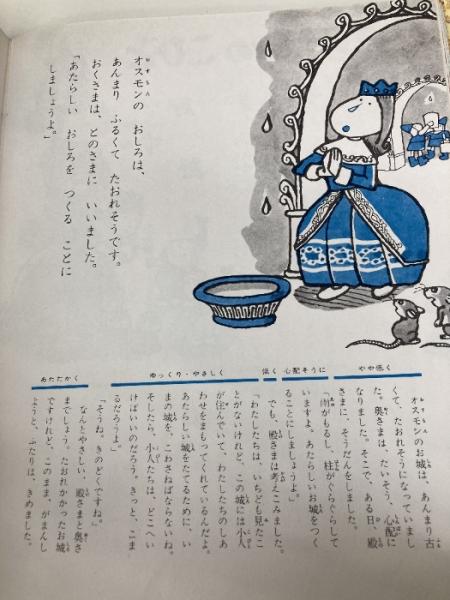 オスモンの おしろは、
あんまり ふるくて たおれそうです。
おくさまは、とのさまに いいました。
「あたらしい おしろを つくる ことに
しましょうよ。」
やや低く
心配そうに
低く
ゆっくり・やさしく
あたたかく
オスモンのお城は、あんまり古
くて、たおれそうになっていまし
た。奥さまは、たいそう、心配に
なりました。そこで、ある日、殿
さまに、そうだんをしました。
「雨がもるし、柱がぐらぐらして
いますよ。あたらしいお城をつく
ることにしましょよ。」
でも、殿さまは考えこみました。
「わたしたちは、いちども見たこ
とがないけれど、この城には小人
が住んでいて、わたしたちのしあ
わせをまもってくれているんだよ。
あたらしい城をたてるために、い
まの城を、こわさねばならないね。
そしたら、小人たちは、どこへい
けばいいのだろう。きっと、こま
るだろうよ」
「そうね。きのどくですね。」
なんとやさしい、殿さまと奥さ
までしょう。たおれかかったお城
ですけれど、このまま、がまんし
ようと、ふたりは、きめました。